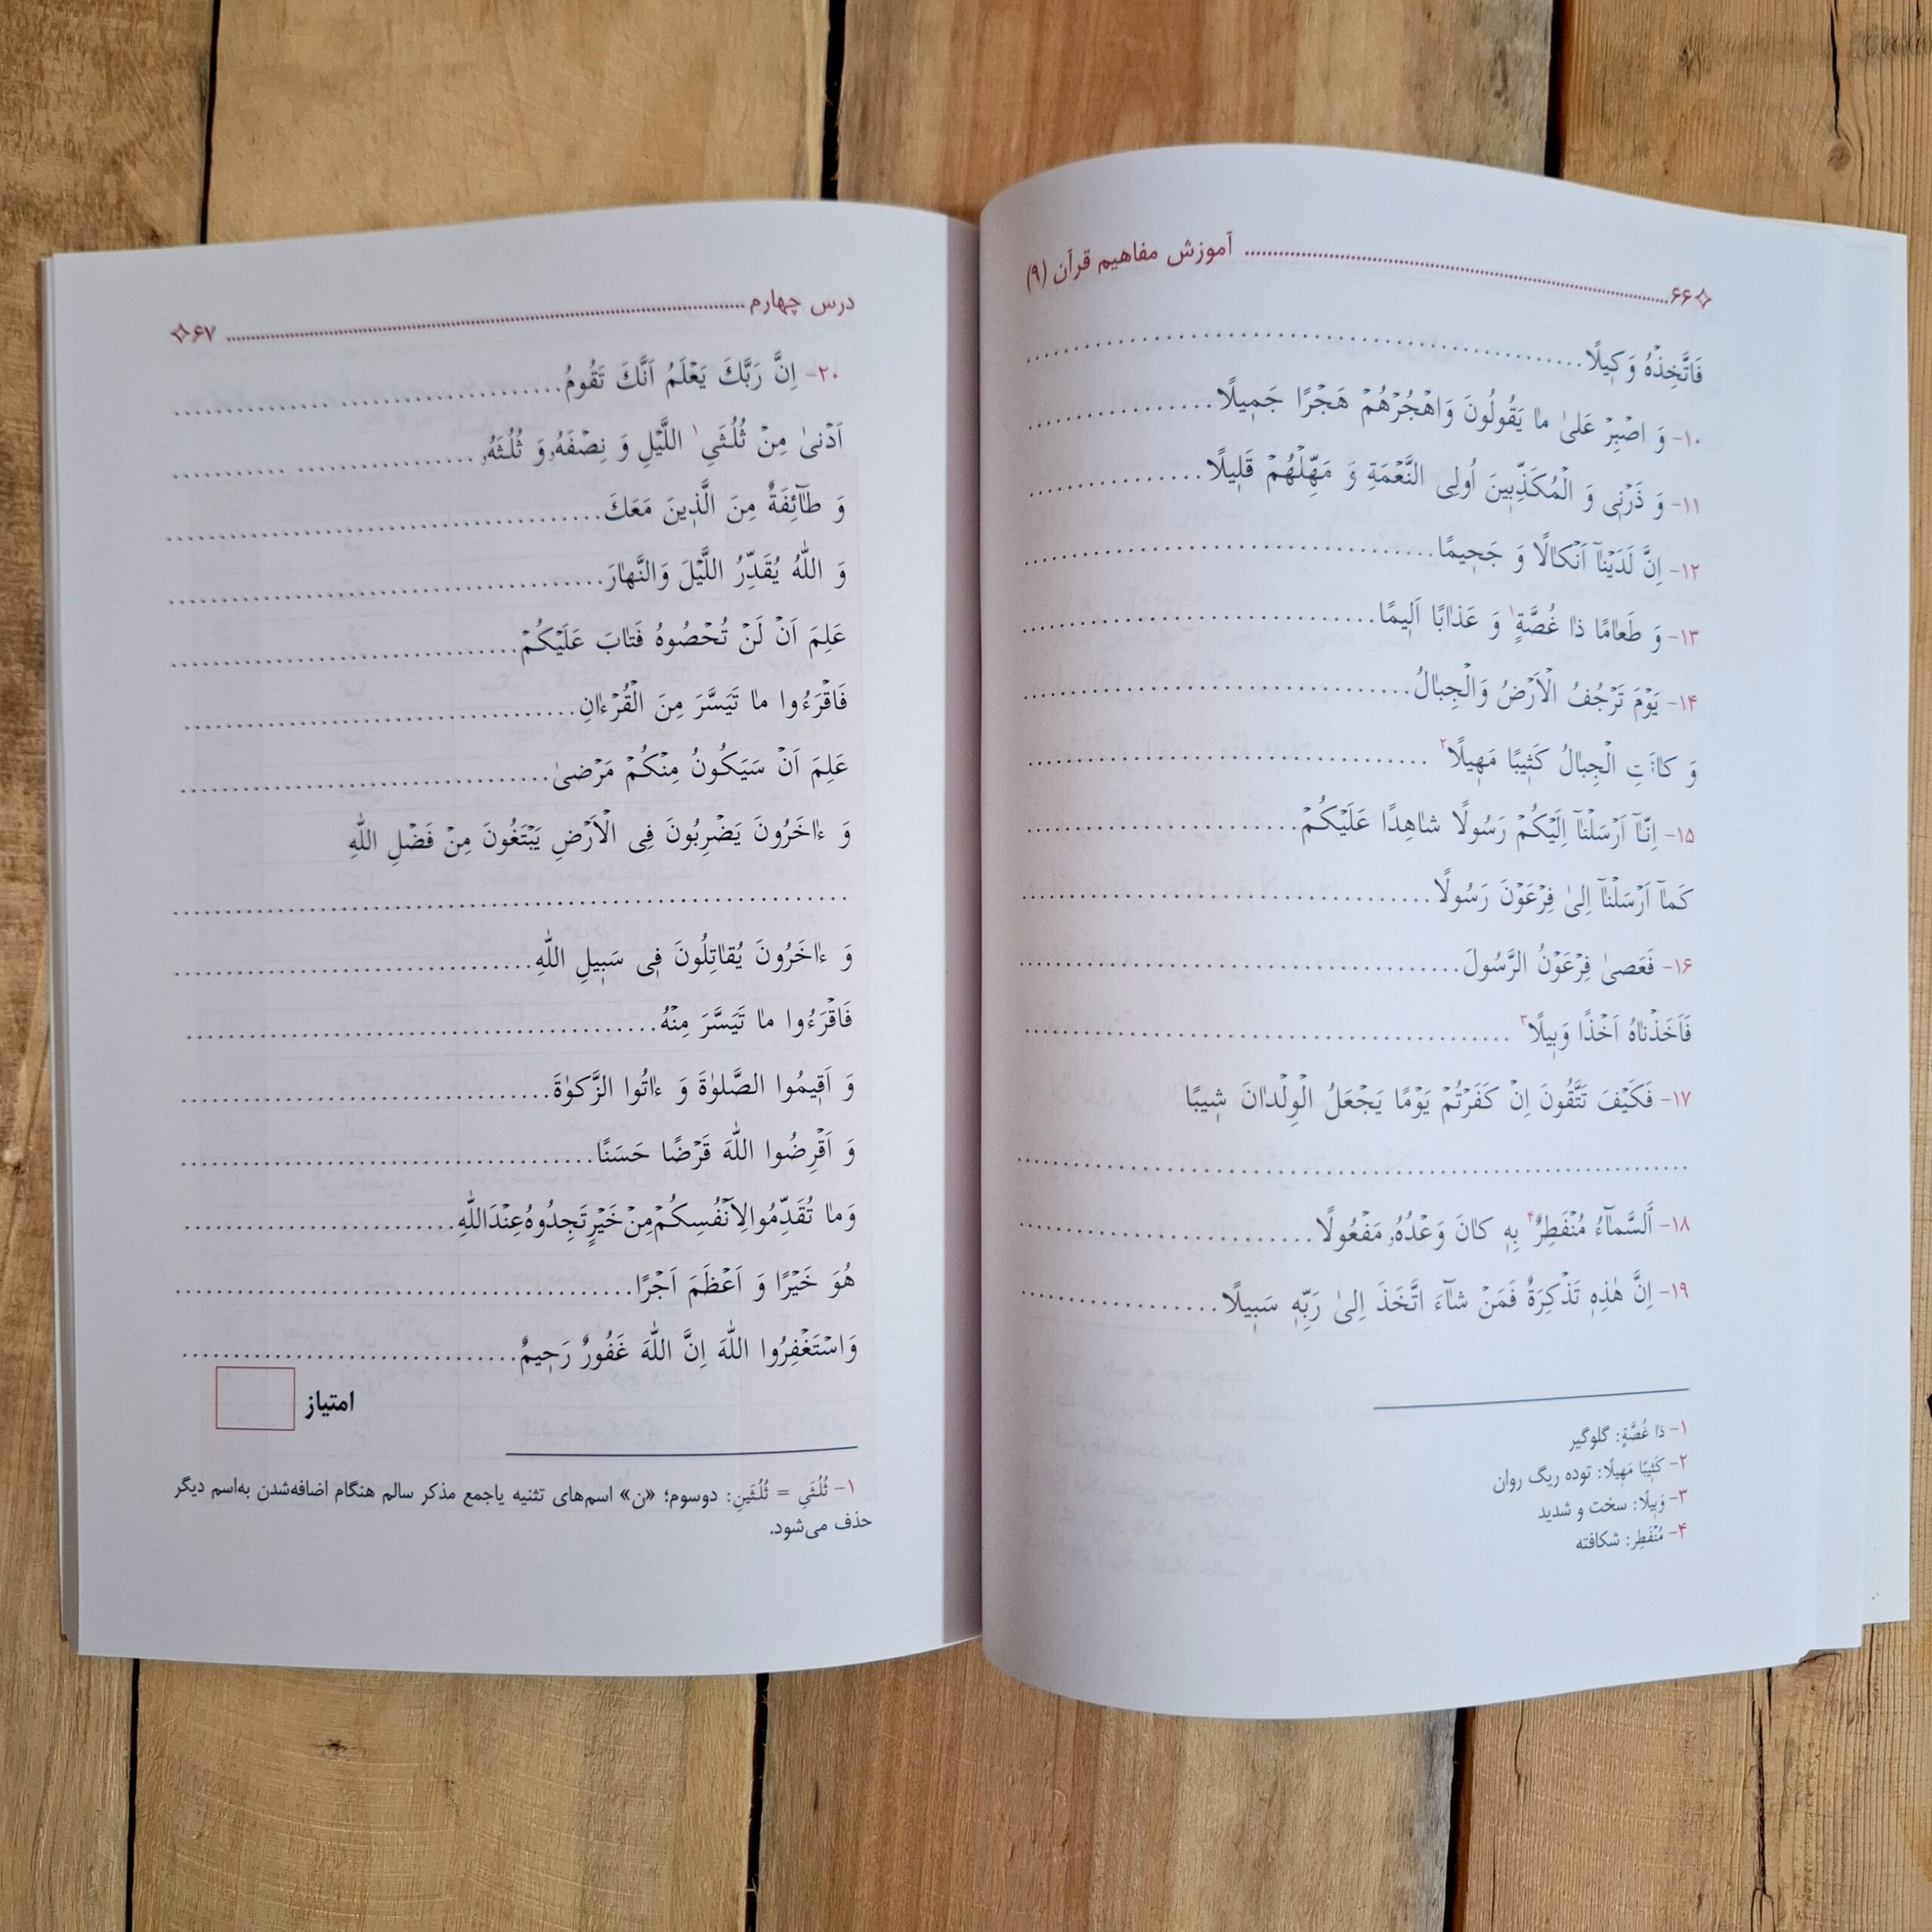 ✧۶۶ آموزش مفاهیم قرآن (۹)
فَاتَّخِذْهُ وَكِيلًا
۱۰- وَ اصْبِرْ عَلىٰ ما يَقُولُونَ وَاهْجُرْهُمْ هَجْرًا جَمِيلًا
۱۱- وَ ذَرْنِى وَ الْمُكَذِّبِينَ اُولِى النَّعْمَةِ وَ مَهِّلْهُمْ قَلِيلًا
۱۲- اِنَّ لَدَيْنآ اَنْكالًا وَ جَحِيمًا
۱۳- وَ طَعامًا ذا غُصَّةٍ۱ وَ عَذابًا اَلِيمًا
۱۴- يَوْمَ تَرْجُفُ الْاَرْضُ وَالْجِبالُ
وَ كانَتِ الْجِبالُ كَثِيبًا مَهِيلًا۲
۱۵- اِنّآ اَرْسَلْنآ اِلَيْكُمْ رَسُولًا شاهِدًا عَلَيْكُمْ
كَمآ اَرْسَلْنآ اِلىٰ فِرْعَوْنَ رَسُولًا
۱۶- فَعَصىٰ فِرْعَوْنُ الرَّسُولَ
فَاَخَذْناهُ اَخْذًا وَبِيلًا۳
۱۷- فَكَيْفَ تَتَّقُونَ اِنْ كَفَرْتُمْ يَوْمًا يَجْعَلُ الْوِلْدانَ شِيبًا
۱۸- اَلسَّمآءُ مُنْفَطِرٌ۴ بِهٖ كانَ وَعْدُهُۥ مَفْعُولًا
۱۹- اِنَّ هٰذِهٖ تَذْكِرَةٌ فَمَنْ شآءَ اتَّخَذَ اِلىٰ رَبِّهٖ سَبِيلًا
۱- ذا غُصَّةٍ: گلوگیر
۲- كَثِيبًا مَهِيلًا: توده ریگ روان
۳- وَبِيلًا: سخت و شدید
۴- مُنْفَطِر: شکافته
درس چهارم ۶۷✧
۲۰- اِنَّ رَبَّكَ يَعْلَمُ اَنَّكَ تَقُومُ
اَدْنىٰ مِنْ ثُلُثَىِ۱ اللَّيْلِ وَ نِصْفَهُۥ وَ ثُلُثَهُۥ
وَ طآئِفَةٌ مِنَ الَّذِينَ مَعَكَ
وَ اللّٰهُ يُقَدِّرُ اللَّيْلَ وَالنَّهارَ
عَلِمَ اَنْ لَنْ تُحْصُوهُ فَتابَ عَلَيْكُمْ
فَاقْرَءُوا ما تَيَسَّرَ مِنَ الْقُرْءانِ
عَلِمَ اَنْ سَيَكُونُ مِنْكُمْ مَرْضىٰ
وَ ءاخَرُونَ يَضْرِبُونَ فِى الْاَرْضِ يَبْتَغُونَ مِنْ فَضْلِ اللّٰهِ
وَ ءاخَرُونَ يُقاتِلُونَ فِى سَبِيلِ اللّٰهِ
فَاقْرَءُوا ما تَيَسَّرَ مِنْهُ
وَ اَقِيمُوا الصَّلوٰةَ وَ ءاتُوا الزَّكوٰةَ
وَ اَقْرِضُوا اللّٰهَ قَرْضًا حَسَنًا
وَما تُقَدِّمُوا لِاَنْفُسِكُمْ مِنْ خَيْرٍ تَجِدُوهُ عِنْدَ اللّٰهِ
هُوَ خَيْرًا وَ اَعْظَمَ اَجْرًا
وَاسْتَغْفِرُوا اللّٰهَ اِنَّ اللّٰهَ غَفُورٌ رَحِيمٌ
امتیاز
۱- ثُلُثَىِ = ثُلُثَينِ: دوسوم؛ «ن» اسم‌های تثنیه یاجمع مذکر سالم هنگام اضافه‌شدن به‌اسم دیگر
حذف می‌شود.